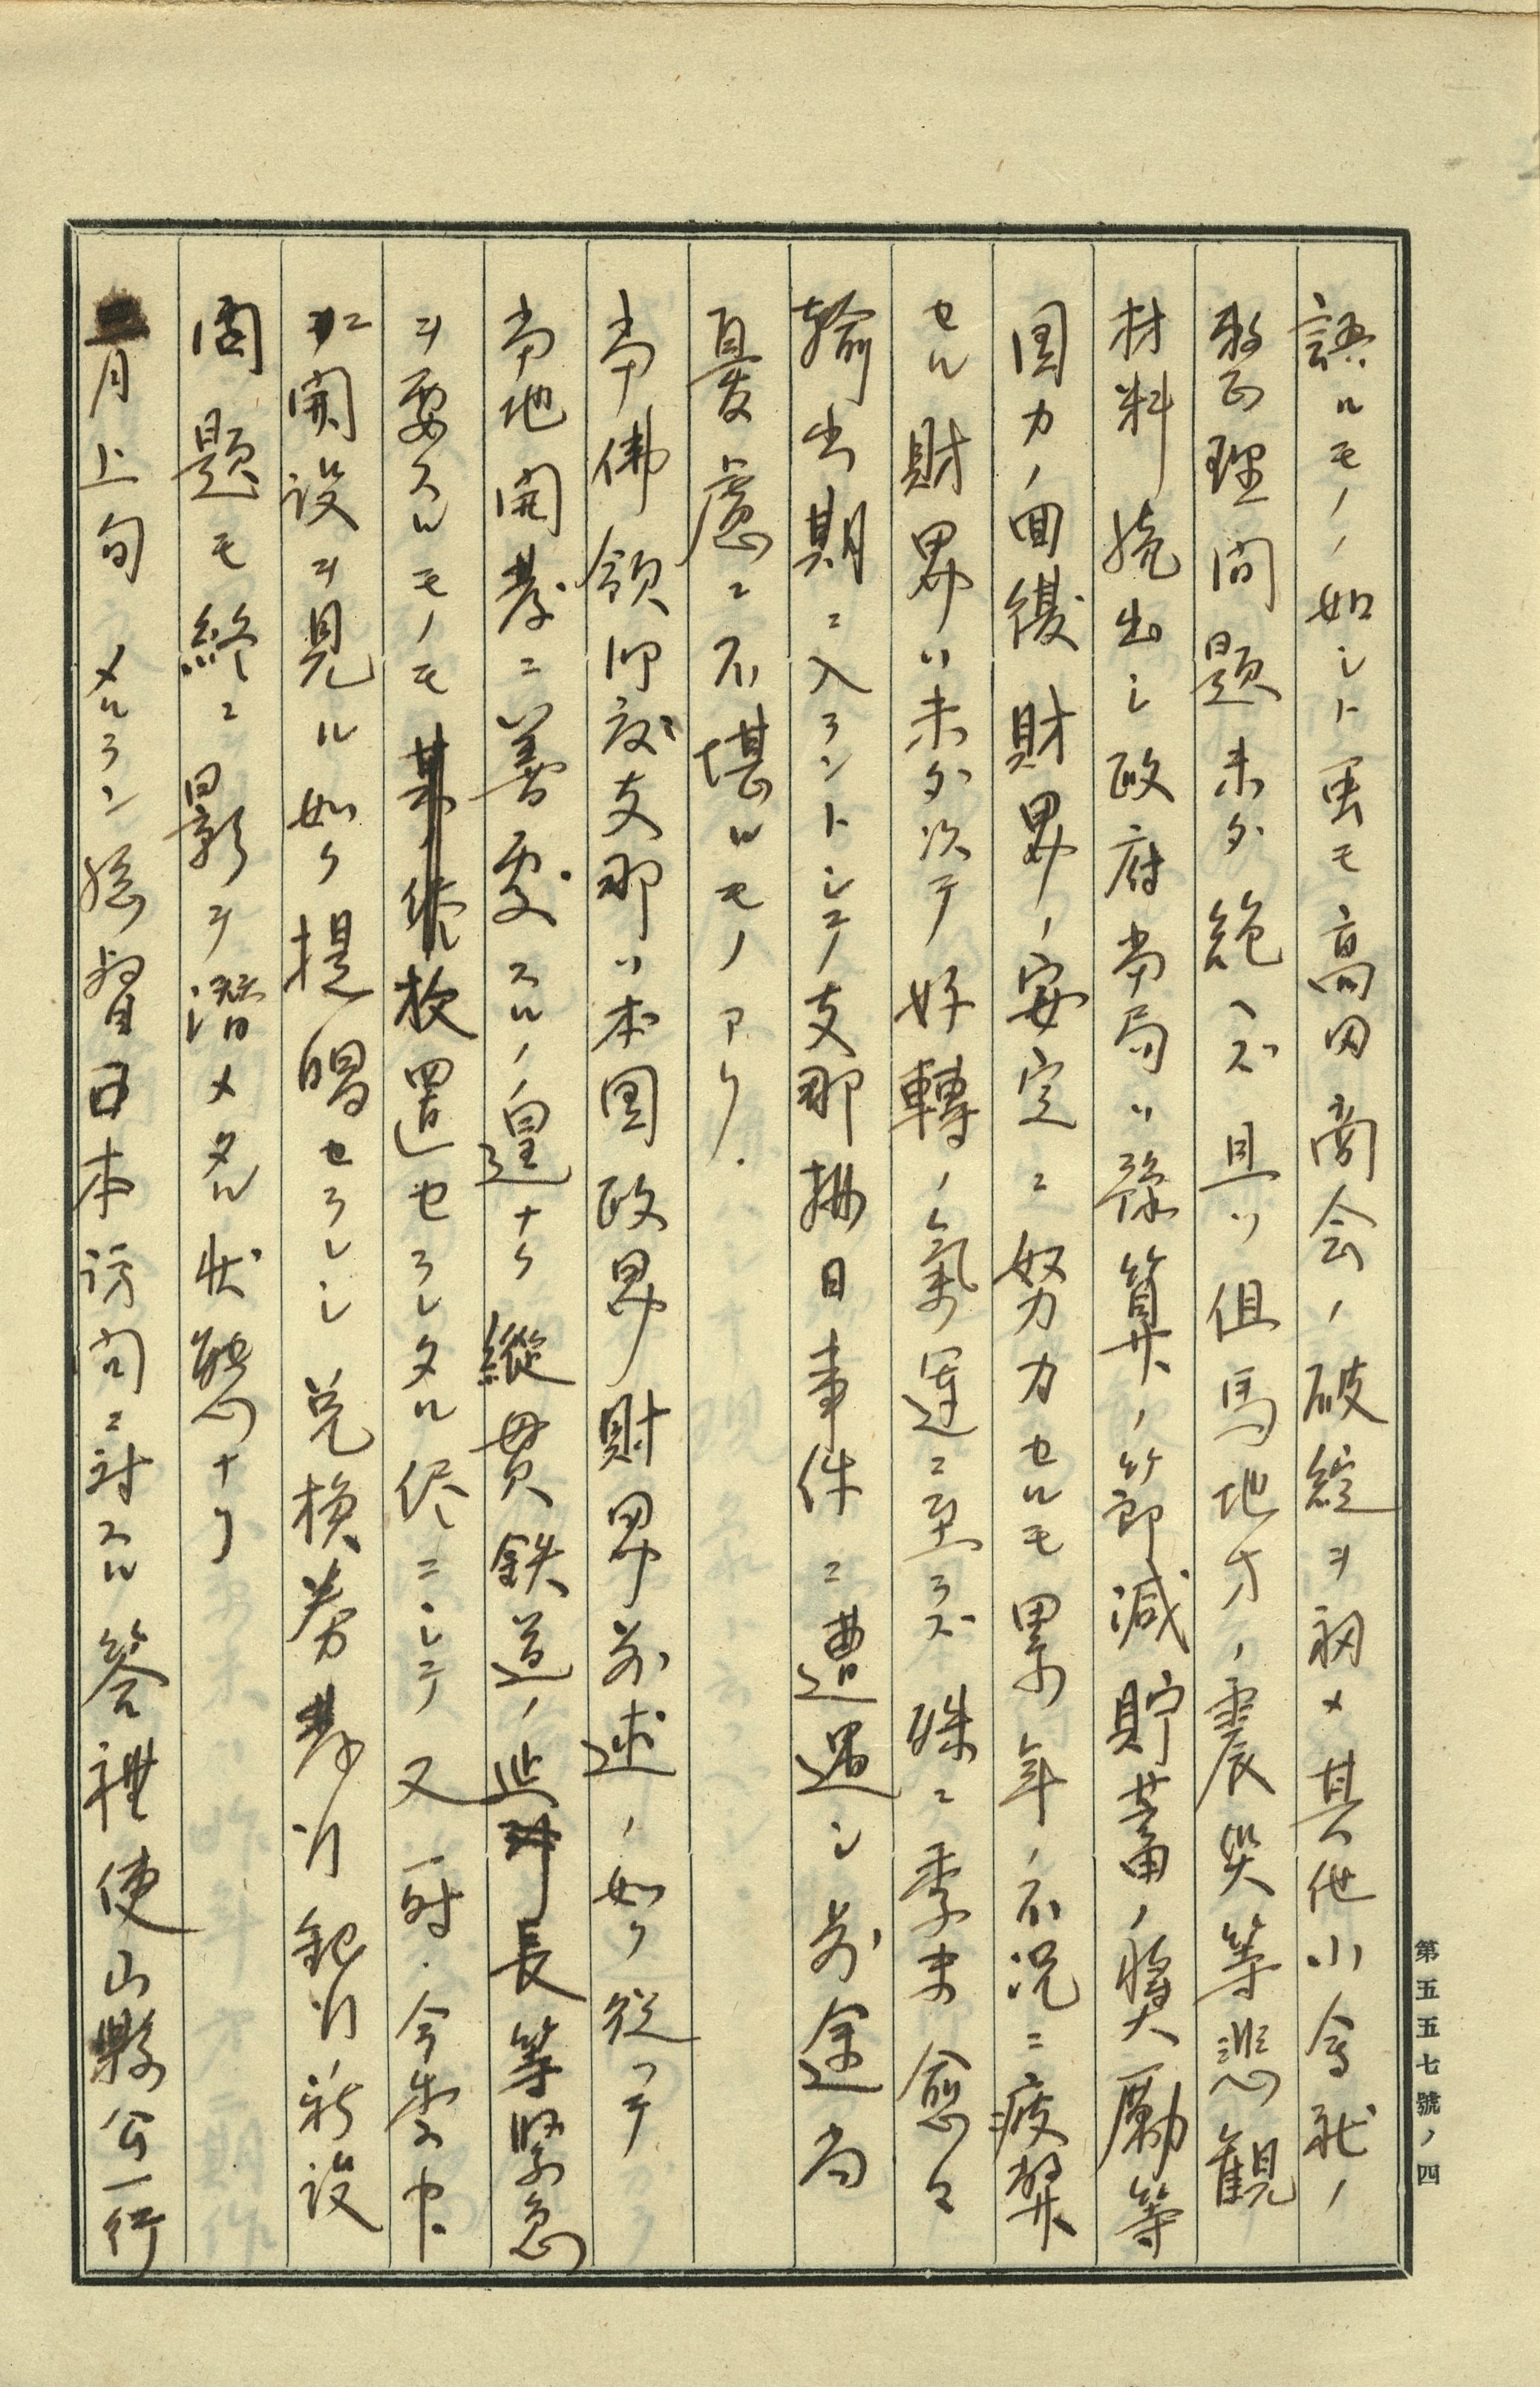 語ルモノヽ如シト虽モ高田商会ノ破綻ヲ初メ其他小会社ノ
整理問題未タ絶ヘズ且ツ但馬地方ノ震災等悲観
材料続出シ政府当局ハ豫算ノ節減貯蓄ノ奨励等
国力ノ回復財界ノ安定ニ努力セルモ累年ノ不況ニ疲弊
セル財界ハ未タ以テ好轉ノ氣運ニ至ラズ殊ニ季末愈々
輸出期ニ入ラントシテ支那排日事件ニ遭遇シ前途尚
憂慮ニ不堪ルモノアリ.
当佛領印度支那ハ本国政界財界前述ノ如ク従ツテ
当地開発ニ善處スルノ遑ナク縦貫鉄道ノ延長等緊急
ヲ要スルモノモ放置セラレタル侭ニシテ又一時.今半
開設ヲ見ル如ク提唱セラレシ兌換券発行銀行新設
問題モ終ニ影ヲ潜メタル状態ナリ
月上旬メルラン総督日本訪問ニ対スル答禮使山縣公一行
第五五七號ノ四